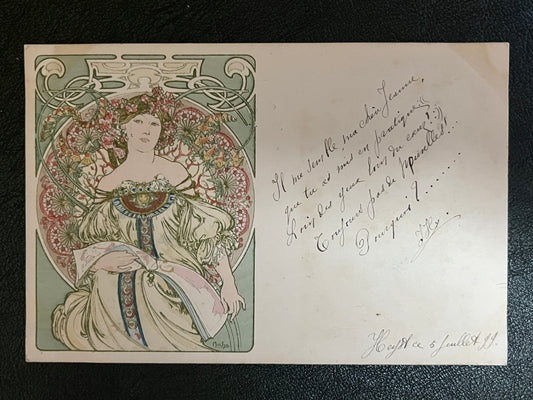 Il me semble, ma chère Jeanne,
que tu as mis en pratique:
Loin des yeux loin du cœur!
Toujours pas de nouvelles!...
Pourquoi?.......
Mucha
Heyst ce 5 Juillet 99.